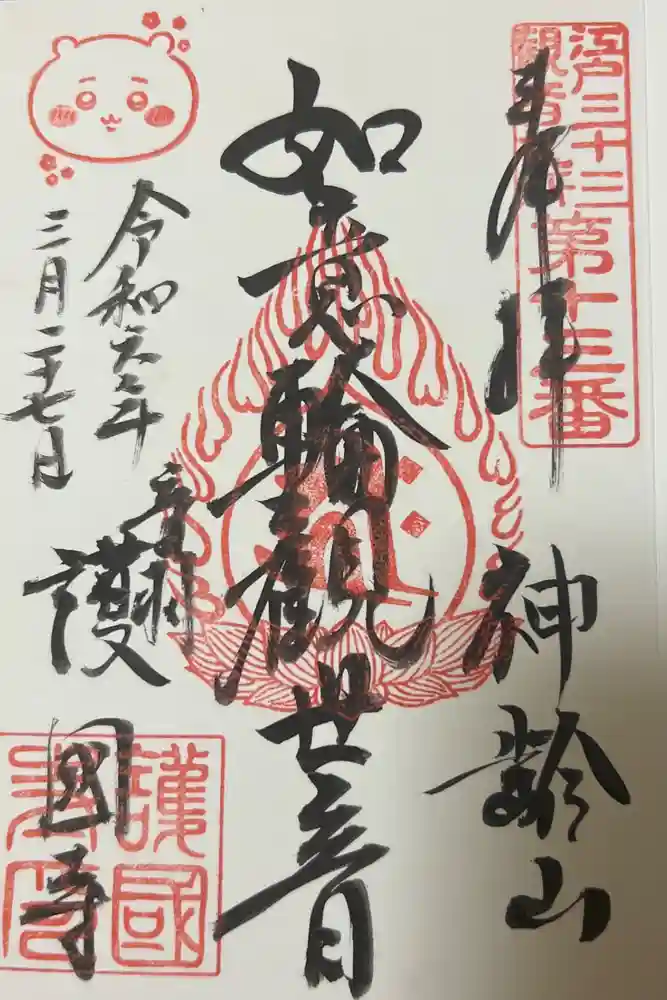 江戸三十三
観音札所
第十三番
奉拝
神齢山
如意輪觀世音
令和六年
三月二十七日
音羽
護國寺
護國